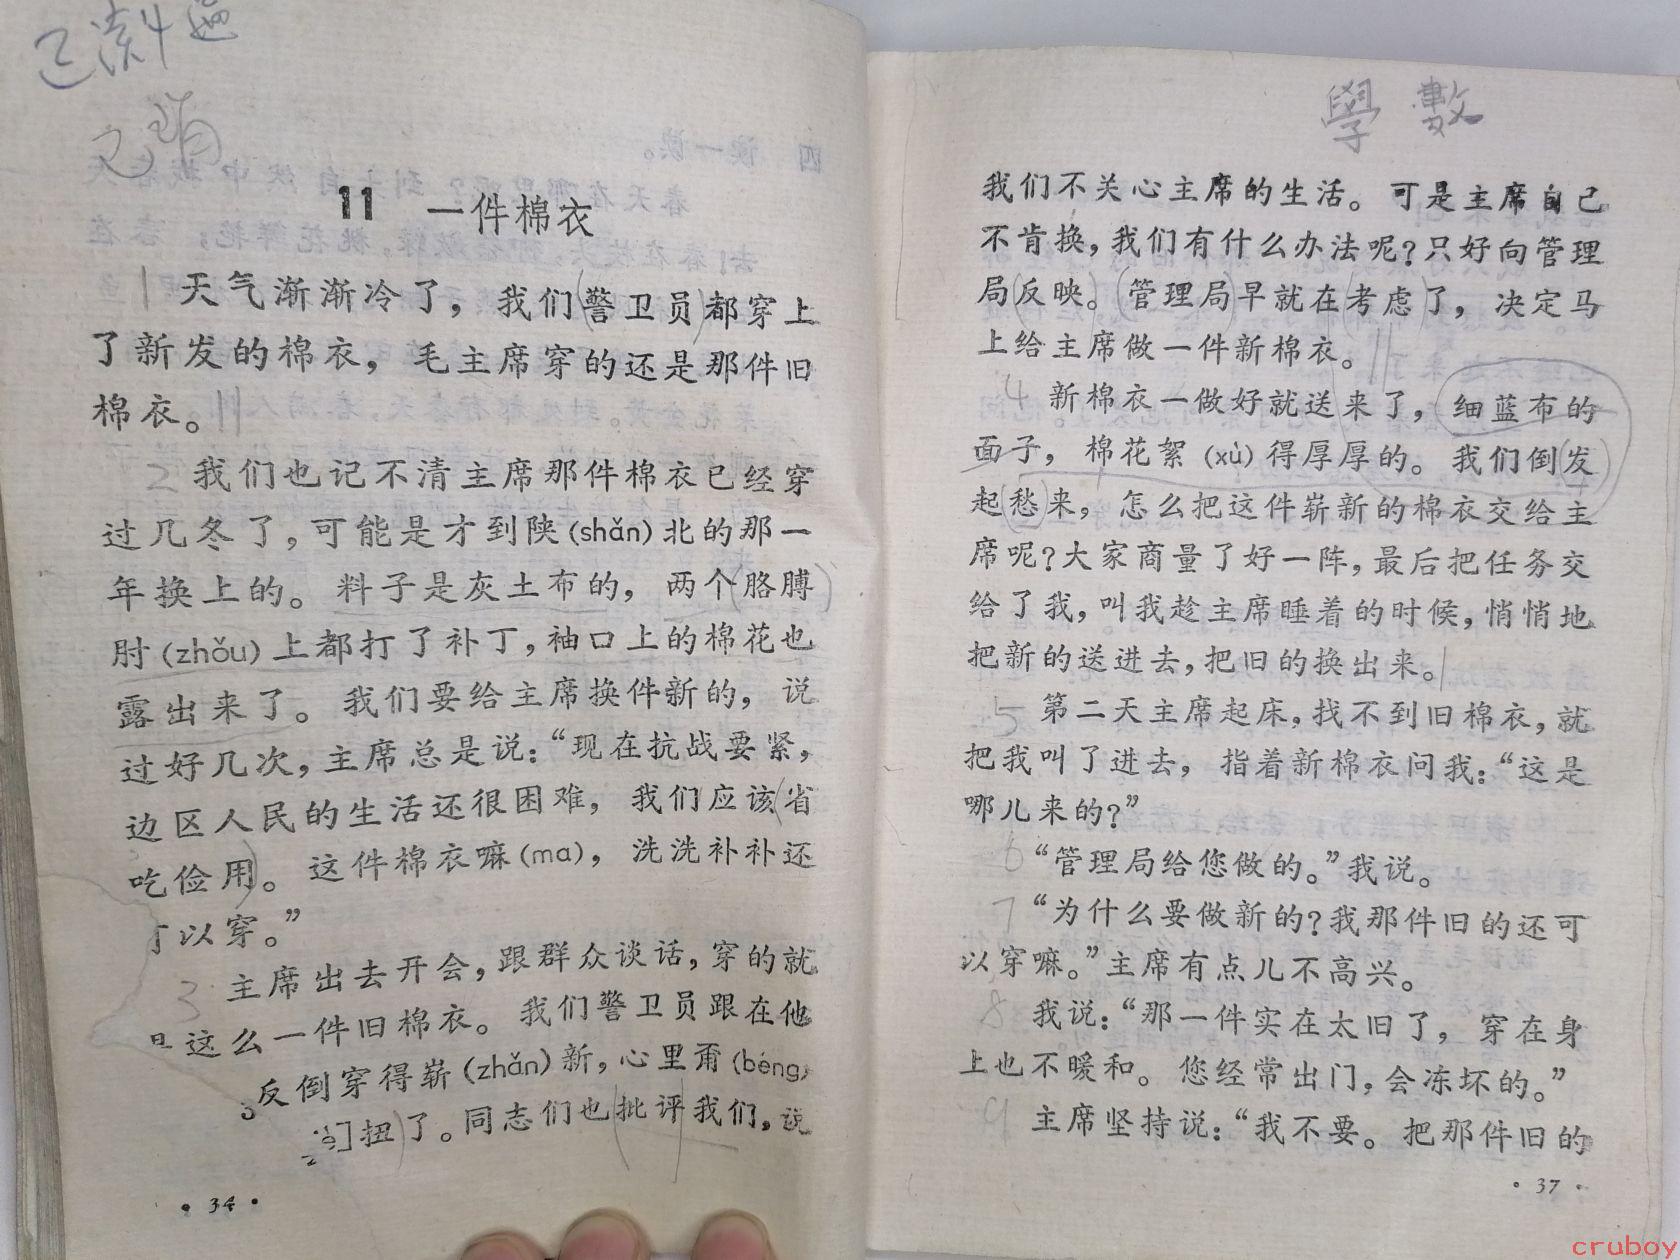 已读4遍
11 一件棉衣
天气渐渐冷了，我们警卫员都穿上
了新发的棉衣，毛主席穿的还是那件旧
棉衣。
2 我们也记不清主席那件棉衣已经穿
过几冬了，可能是才到陕(shǎn)北的那一
年换上的。料子是灰土布的，两个胳膊
肘(zhǒu)上都打了补丁，袖口上的棉花也
露出来了。我们要给主席换件新的，说
过好几次，主席总是说：“现在抗战要紧，
边区人民的生活还很困难，我们应该省
吃俭用。这件棉衣嘛(ma)，洗洗补补还
以穿。”
3 主席出去开会，跟群众谈话，穿的就
这么一件旧棉衣。我们警卫员跟在他
反倒穿得崭(zhǎn)新，心里甭(béng)
扭了。同志们也批评我们，说
·34·
學 數
我们不关心主席的生活。可是主席自己
不肯换，我们有什么办法呢？只好向管理
局反映。管理局早就在考虑了，决定马
上给主席做一件新棉衣。
4 新棉衣一做好就送来了，细蓝布的
面子，棉花絮(xù)得厚厚的。我们倒发
起愁来，怎么把这件崭新的棉衣交给主
席呢？大家商量了好一阵，最后把任务交
给了我，叫我趁主席睡着的时候，悄悄地
把新的送进去，把旧的换出来。
5 第二天主席起床，找不到旧棉衣，就
把我叫了进去，指着新棉衣问我：“这是
哪儿来的？”
6 “管理局给您做的。”我说。
7 “为什么要做新的？我那件旧的还可
以穿嘛。”主席有点儿不高兴。
8 我说：“那一件实在太旧了，穿在身
上也不暖和。您经常出门，会冻坏的。”
9 主席坚持说：“我不要。把那件旧的
·37·
cruboy